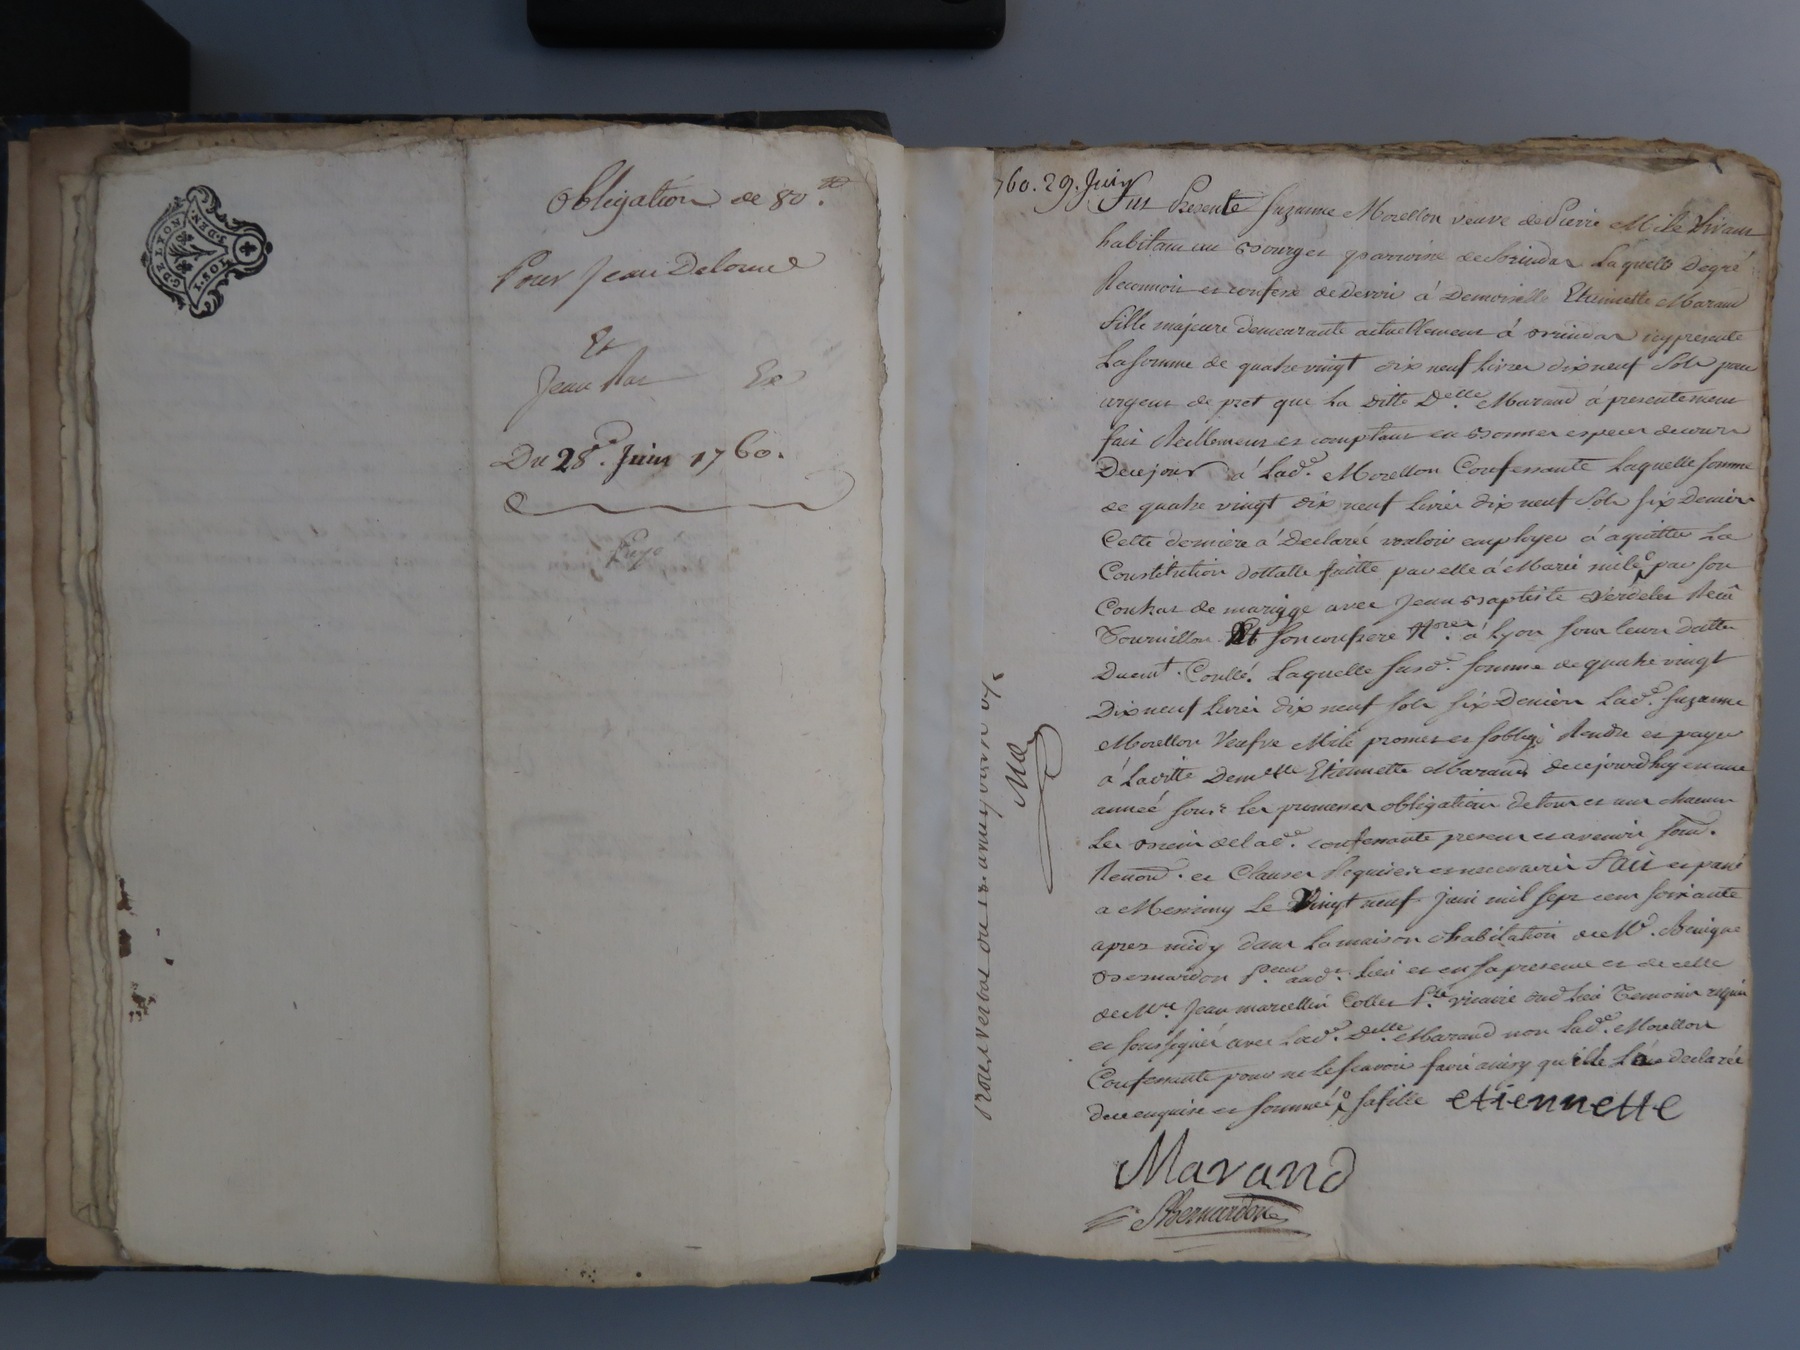 G. DE LYON
1. SOL
5. DEN.
Obligation de 80.tt
Pour Jean Delorme
Et
Jean Ras Ex
Du 28.e Juin 1760.
Payé
760. 29. Juin
Fut Presente Suzanne Morellon veuve de Pierre Milé Vivant
habitant au Bourg et parroisse de Brindas Laquelle Degré
Reconnoit et confesse de Devoir à Demoiselle Etiennette Marand
fille majeure demeurante actuellement à Brindas icy presente
La somme de quatre vingt dix neuf livres dix neuf sols pour
argent de pret que La ditte Delle Marand à presentement
fait Réellement et comptant en Bonnes especes de cours
De ce jour à Lade. Morellon Confessante Laquelle somme
de quatre vingt dix neuf livres dix neuf sols six Deniers
Cette derniere à Declaré vouloir employer à aquitter La
Constitution dottalle faitte par elle à Marie milé par son
Contrat de mariage avec Jean Baptiste Verdelet Reçû
Tournillon Et son confrere Nres. à Lyon sous leurs datte
Duemt. Collé. Laquelle susde. somme de quatre vingt
Dix neuf livres dix neuf sols six Deniers Lade. Suzanne
Morellon Veufve Milé promet et s'oblige Rendre et payer
à Laditte Demelle Etiennette Marand de ce jourdhuy en une
année sous les premieres obligation de tous et un chacun
Les Biens de lade. confessante present et avenir soud.
Renond. et Clauses Requises et necessaires Fait et passé
a Messimy Le Vingt neuf juin mil sept cent soixante
apres midy dans La maison d'habitation de Mr. Benigne
Bernardon Pcur. aud. Lieu et en sa presence et de celle
de Mre. Jean marcellin Collet Ptre. vicaire dud Lieu Temoins requis
et soussignés avec Lade. Delle. Marand non Lade. Morellon
Confessante pour ne le sçavoir faire ainsy qu'elle La declaré
de ce enquise et sommée sa fille etiennette
Marand
Bernardon